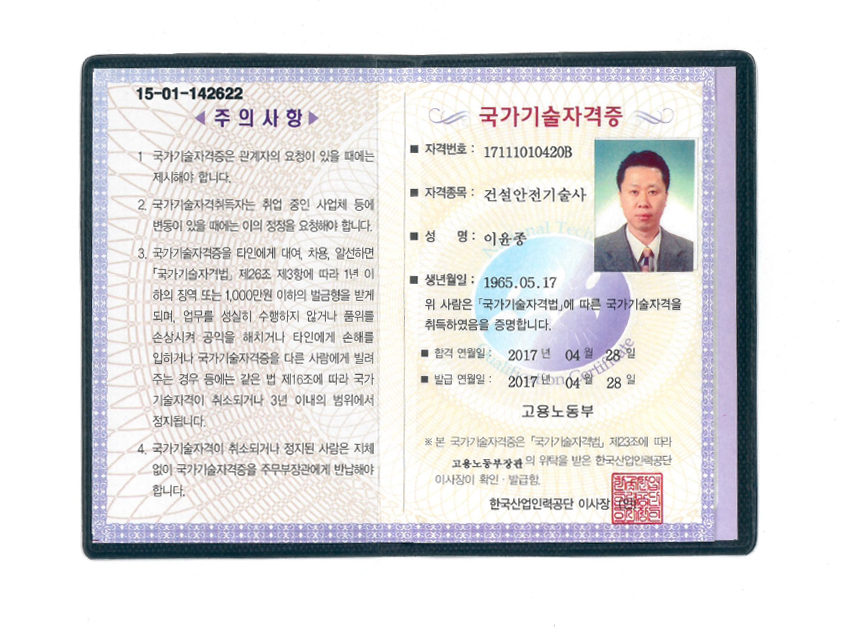 15-01-142622
주의사항
1 국가기술자격증은 관계자의 요청이 있을 때에는
제시해야 합니다.
2. 국가기술자격취득자는 취업 중인 사업체 등에
변동이 있을 때에는 이의 정정을 요청해야 합니다.
3. 국가기술자격증을 타인에게 대여, 차용, 알선하면
「국가기술자격법」 제26조 제3항에 따라 1년 이
하의 징역 또는 1,000만원 이하의 벌금형을 받게
되며, 업무를 성실히 수행하지 않거나 품위를
손상시켜 공익을 해치거나 타인에게 손해를
입히거나 국가기술자격증을 다른 사람에게 빌려
주는 경우 등에는 같은 법 제16조에 따라 국가
기술자격이 취소되거나 3년 이내의 범위에서
정지됩니다.
4. 국가기술자격이 취소되거나 정지된 사람은 지체
없이 국가기술자격증을 주무부장관에게 반납해야
합니다.
국가기술자격증
■ 자격번호 : 17111010420B
■ 자격종목 : 건설안전기술사
■ 성 명 : 이윤종
■ 생년월일 : 1965.05.17
위 사람은 「국가기술자격법」에 따른 국가기술자격을
취득하였음을 증명합니다.
■ 합격 연월일 : 2017 년 04 월 28 일
■ 발급 연월일 : 2017 년 04 월 28 일
고용노동부
※ 본 국가기술자격증은 「국가기술자격법」 제23조에 따라
고용노동부장관 의 위탁을 받은 한국산업인력공단
이사장이 확인·발급함.
한국산업인력공단 이사장